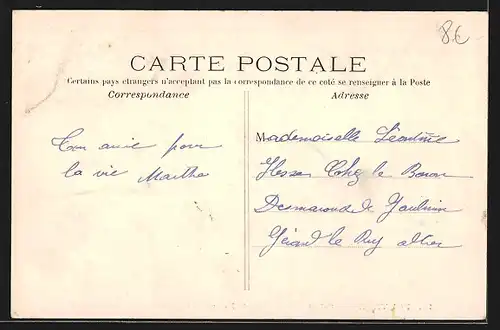 8€
CARTE POSTALE
Certains pays étrangers n'acceptant pas la correspondance de ce coté se renseigner à la Poste
Correspondance
Adresse
Ton amie pour
la vie Martha
Mademoiselle Léontine
Chez le Baron
Desmarond de
Gérand le Puy allier